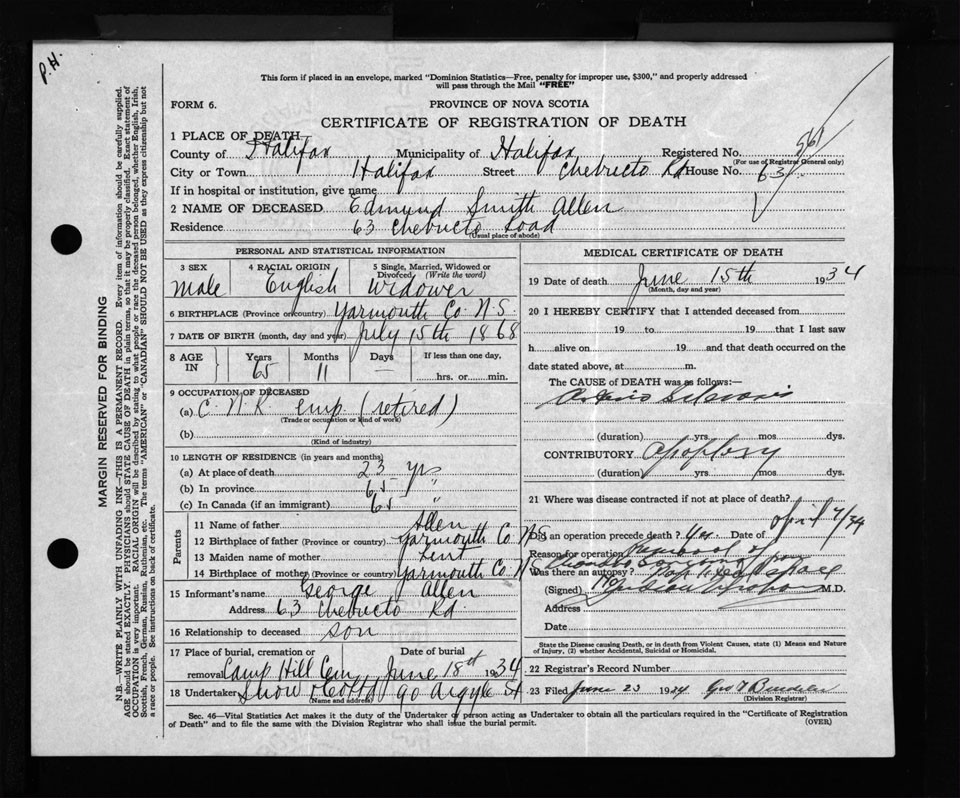 P.H.
This form if placed in an envelope, marked "Dominion Statistics—Free, penalty for improper use, $300," and properly addressed
will pass through the Mail "FREE"
FORM 6.
PROVINCE OF NOVA SCOTIA
CERTIFICATE OF REGISTRATION OF DEATH
1 PLACE OF DEATH
County of Halifax Municipality of Halifax Registered No.
(For use of Registrar General only)
City or Town Halifax Street Chebucto Rd House No. 63
If in hospital or institution, give name
2 NAME OF DECEASED Edmund Smith Allen
Residence 63 Chebucto Road
(Usual place of abode)
PERSONAL AND STATISTICAL INFORMATION
3 SEX male
4 RACIAL ORIGIN English
5 Single, Married, Widowed or Divorced (Write the word) Widower
6 BIRTHPLACE (Province or country) Yarmouth Co. N.S.
7 DATE OF BIRTH (month, day and year) July 15th 1868
8 AGE IN Years 65 Months 11 Days — If less than one day, hrs. or min.
9 OCCUPATION OF DECEASED
(a) C.N.R. emp. (retired)
(Trade or occupation or kind of work)
(b)
(Kind of industry)
10 LENGTH OF RESIDENCE (in years and months)
(a) At place of death 23 yrs
(b) In province 65 "
(c) In Canada (if an immigrant) 65 "
Parents
11 Name of father Allen
12 Birthplace of father (Province or country) Yarmouth Co. N.S
13 Maiden name of mother
14 Birthplace of mother (Province or country) Yarmouth Co. N.S
15 Informant's name George Allen
Address 63 Chebucto Rd.
16 Relationship to deceased son
17 Place of burial, cremation or removal Camp Hill Cem. Date of burial June 18th 1934
18 Undertaker Snow 90 Argyle St
(Name and address)
MEDICAL CERTIFICATE OF DEATH
19 Date of death June 15th 1934
(Month, day and year)
20 I HEREBY CERTIFY that I attended deceased from
19 to 19 that I last saw
h alive on 19 and that death occurred on the
date stated above, at m.
The CAUSE of DEATH was as follows:—
(duration) yrs. mos. dys.
CONTRIBUTORY Apoplexy
(duration) yrs mos. dys.
21 Where was disease contracted if not at place of death?
Did an operation precede death? Yes. Date of April 7/34
Reason for operation
Was there an autopsy?
(Signed) M.D.
Address
Date
State the Disease causing Death, or in death from Violent Causes, state (1) Means and Nature
of Injury, (2) whether Accidental, Suicidal or Homicidal.
22 Registrar's Record Number
23 Filed June 23 1934
(Division Registrar)
Sec. 46—Vital Statistics Act makes it the duty of the Undertaker or person acting as Undertaker to obtain all the particulars required in the "Certificate of Registration
of Death" and to file the same with the Division Registrar who shall issue the burial permit.
(OVER)
MARGIN RESERVED FOR BINDING
N.B.—WRITE PLAINLY WITH UNFADING INK—THIS IS A PERMANENT RECORD. Every item of information should be carefully supplied.
AGE should be stated EXACTLY. PHYSICIANS should STATE CAUSE OF DEATH in plain terms, so that it may be properly classified. Exact statement of
OCCUPATION is very important. RACIAL ORIGIN will be described by stating to what people or race the deceased person belonged, whether English, Irish,
Scottish, French, German, Russian, Ruthenian, etc. The terms "AMERICAN" or "CANADIAN" SHOULD NOT BE USED as they express citizenship but not
a race or people. See instructions on back of certificate.